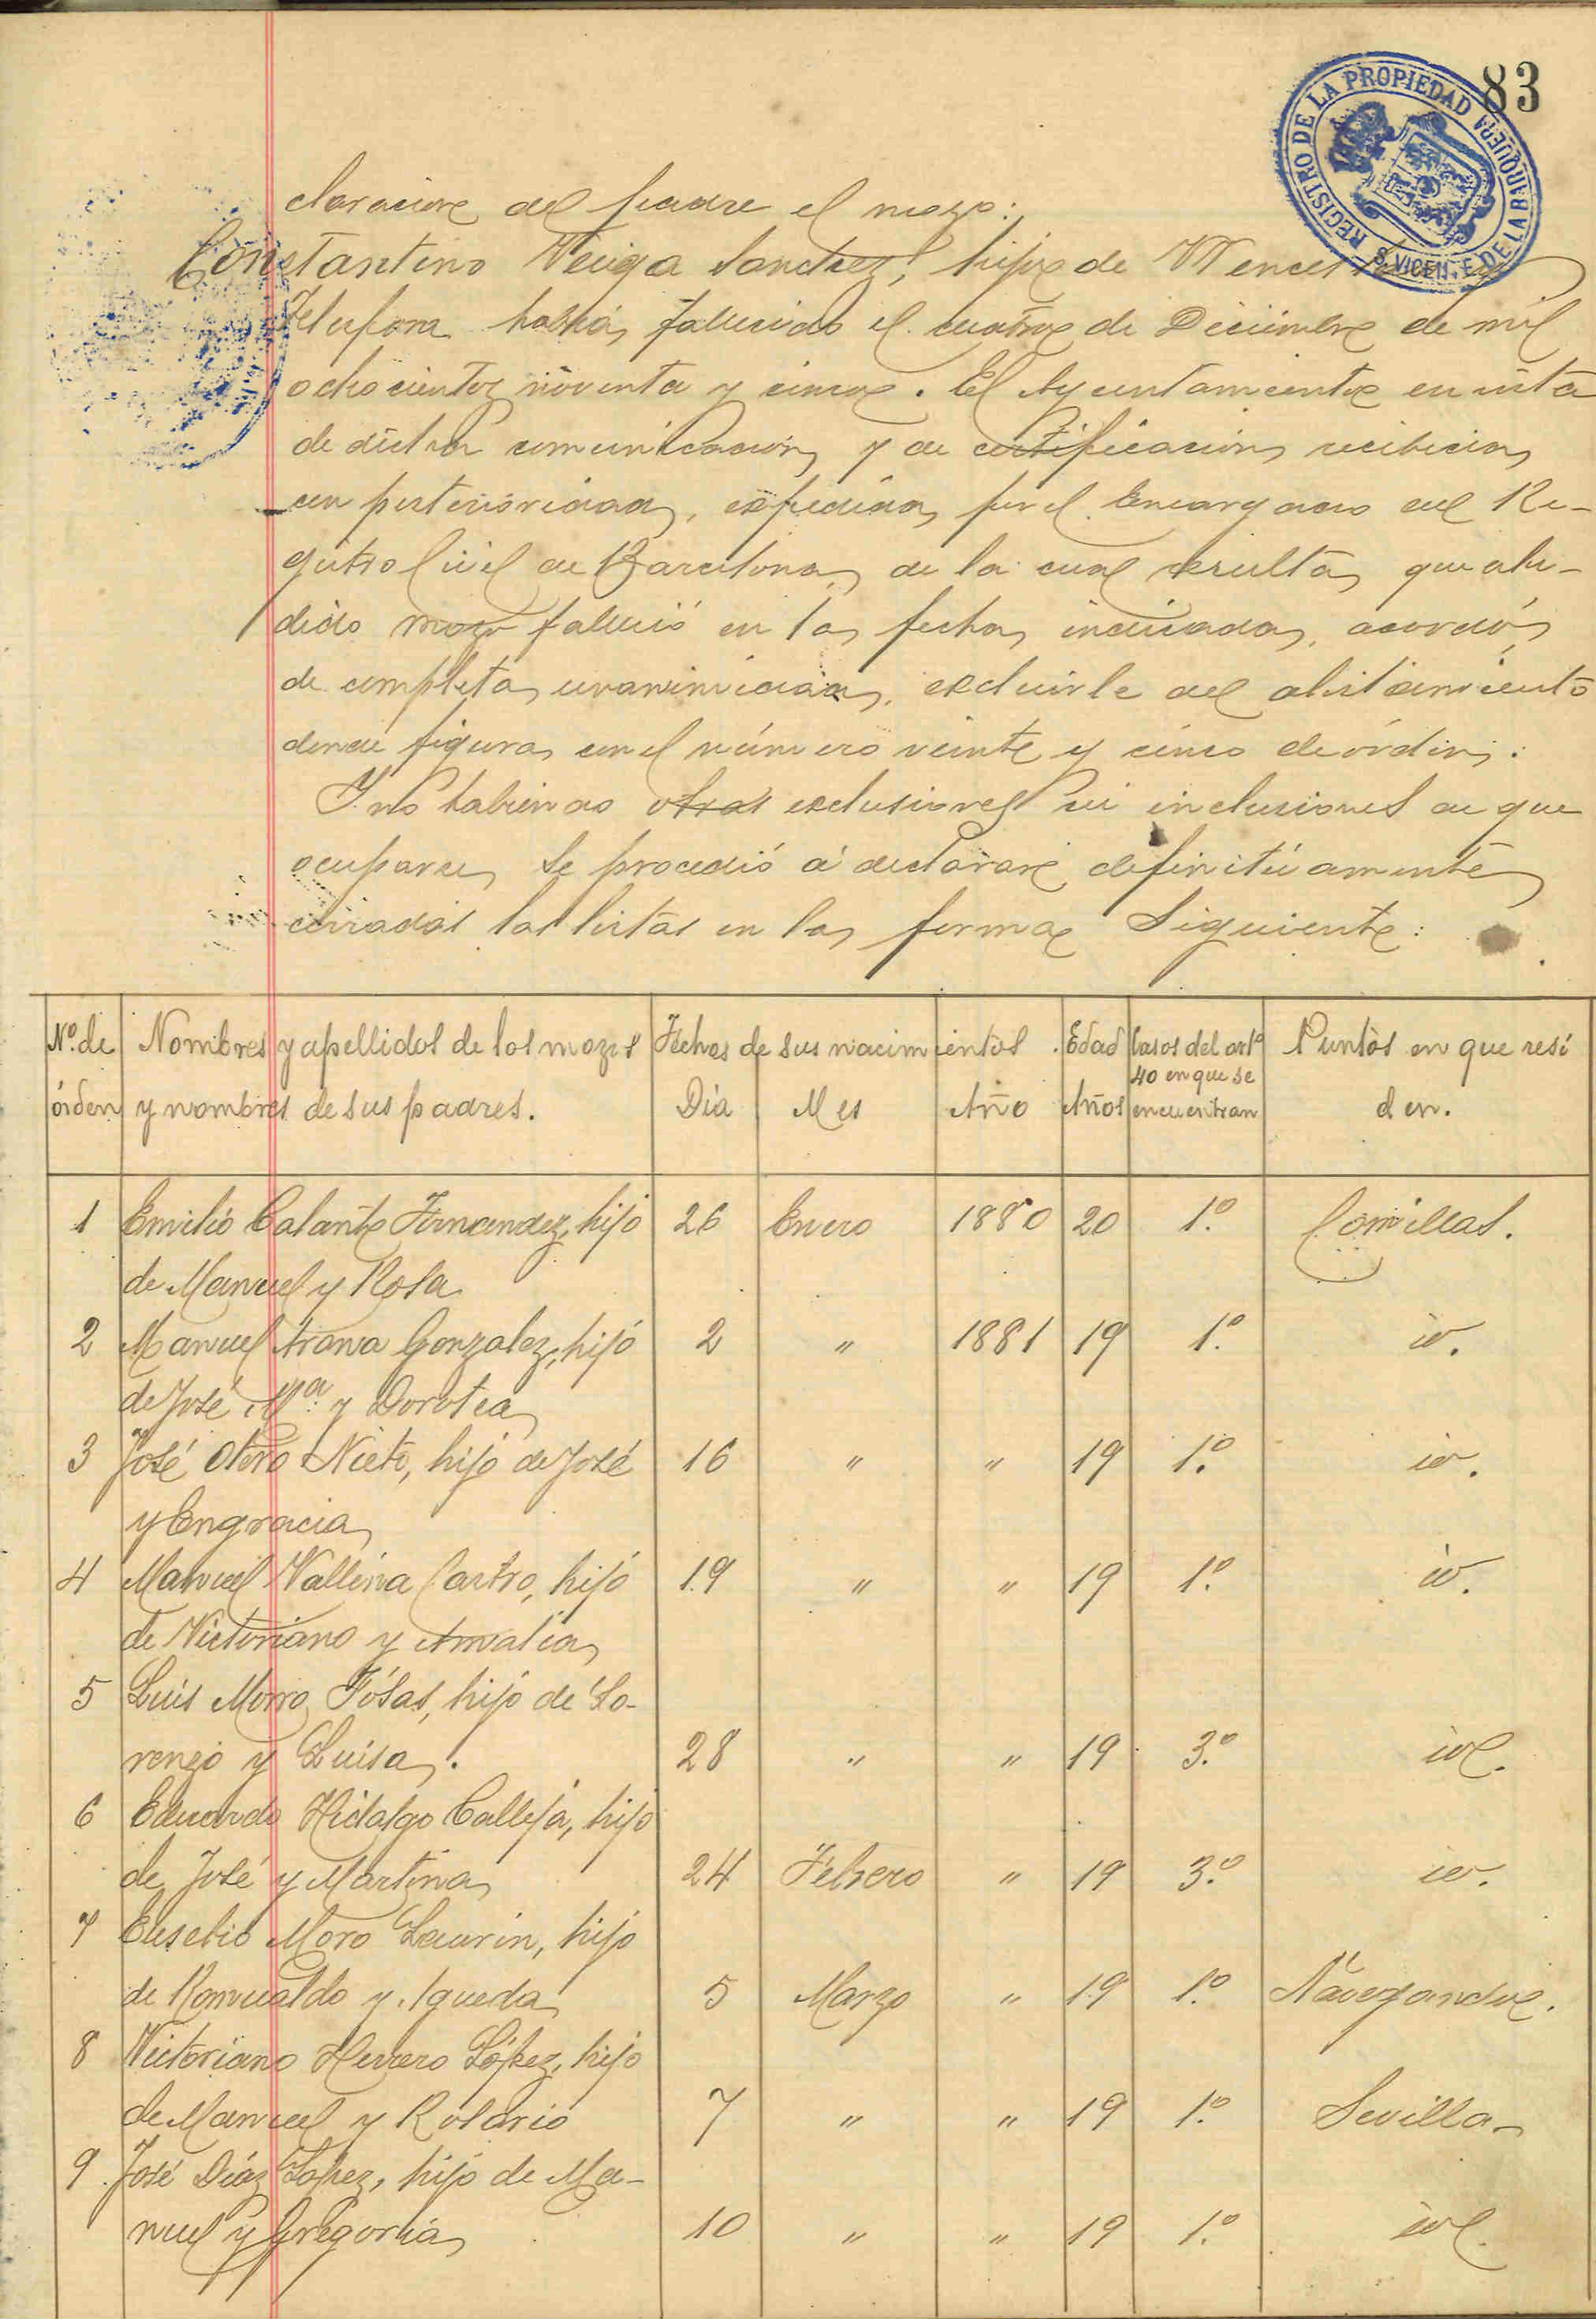 83
REGISTRO DE LA PROPIEDAD
S. VICENTE DE LA BARQUERA
claracion del padre el mozo:
Constantino Veiga Sanchez, hijo de Wences
Telesfora habia fallecido el cuatro de Diciembre de mil
ochocientos noventa y cinco. El Ayuntamiento en vista
de dicha comunicacion y de certificacion recibida
con posterioridad, expedida por el Encargado del Re-
gistro Civil de Barcelona, de la cual resulta que alu-
dido mozo falleció en la fecha indicada, acordó
de completa unanimidad, excluirle del alistamiento
donde figura con el número veinte y cinco de órden:
Y no habiendo otras exclusiones ni inclusiones de que
ocuparse, se procedió á declarar definitivamente
cerradas las listas en la forma siguiente:
Nº. de Nombres y apellidos de los mozos Fechas de sus nacimientos. Edad Casos del artº Puntos en que resi
40 en que se
órden y nombres de sus padres. Día Mes Año Años encuentran den.
1 Emilio Calante Fernandez, hijo 26 Enero 1880 20 1.º Comillas.
de Manuel y Rosa
2 Manuel Arana Gonzalez, hijo 2 " 1881 19 1.º id.
de José Mª. y Dorotea
3 José Otero Nieto, hijo de José 16 " " 19 1.º id.
y Engracia
4 Manuel Vallina Castro, hijo 19 " " 19 1.º id.
de Victoriano y Amalia
5 Luis Morro Fósas, hijo de Lo-
renzo y Luisa. 28 " " 19 3.º id.
6 Eduardo Hidalgo Calleja, hijo
de José y Martina 24 Febrero " 19 3.º id.
7 Eusebio Moro Laurin, hijo
de Romualdo y Agueda 5 Marzo " 19 1.º Navegando.
8 Victoriano Herrero López, hijo
de Manuel y Rosario 7 " " 19 1.º Sevilla
9 José Díaz Lopez, hijo de Ma-
nuel y Gregoria 10 " " 19 1.º id.